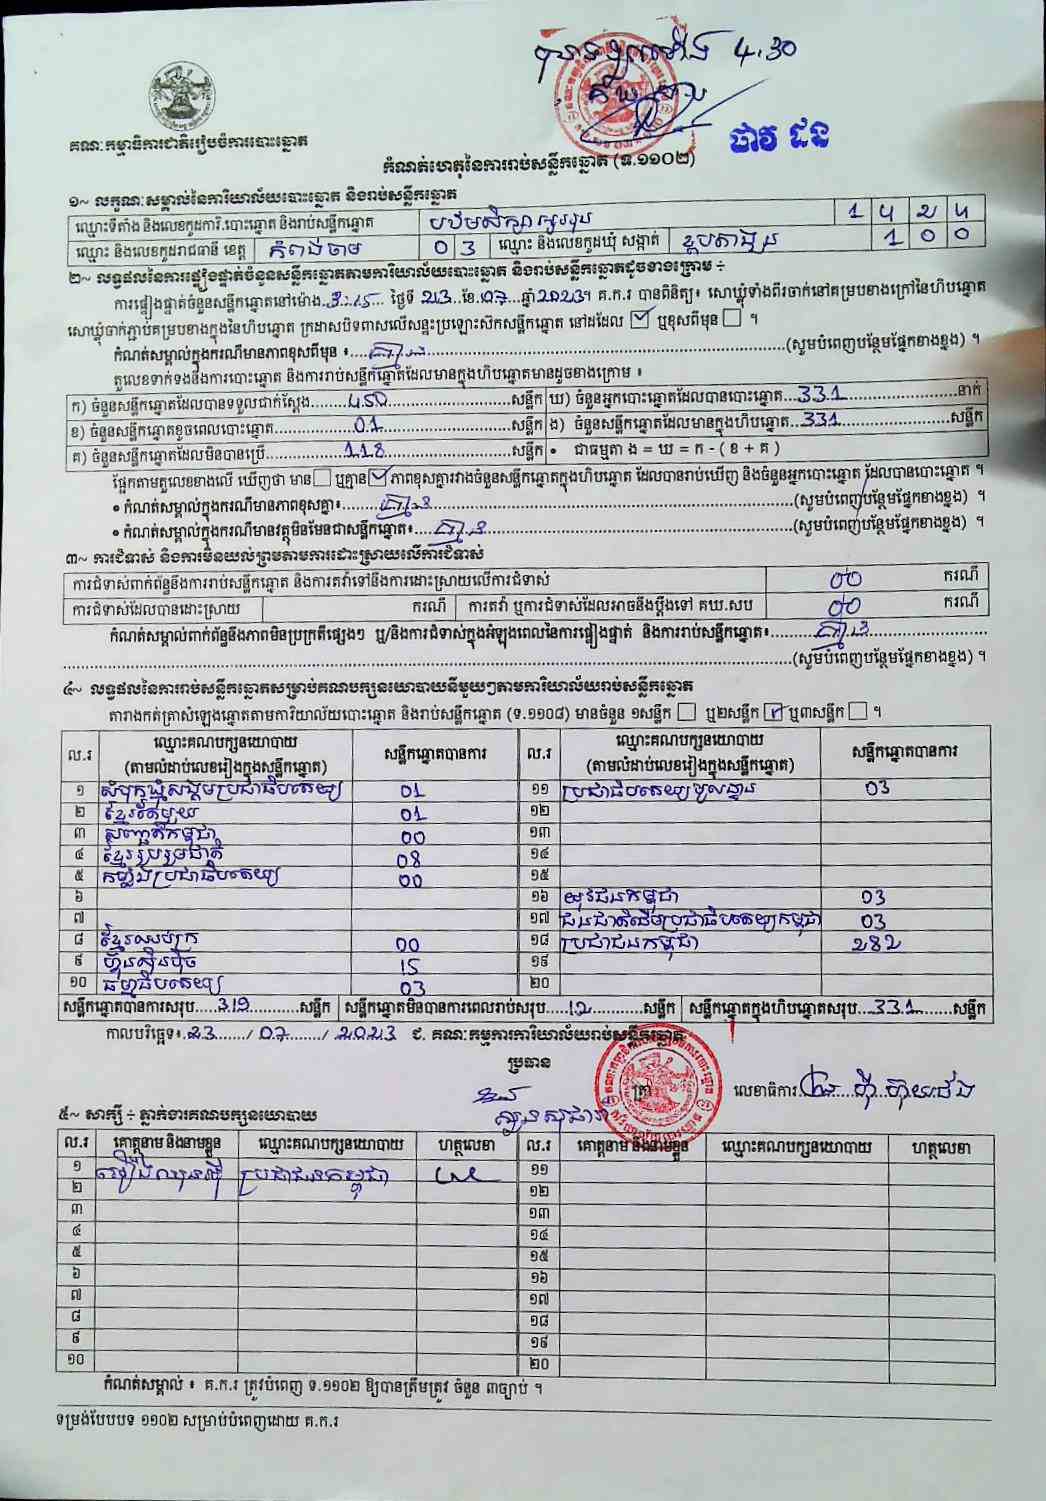 4.30
គណៈកម្មាធិការជាតិរៀបចំការបោះឆ្នោត
ផាវ ជន
កំណត់ហេតុនៃការរាប់សន្លឹកឆ្នោត (ទ.១១០២)
១~ លក្ខណៈសម្គាល់នៃការិយាល័យបោះឆ្នោត និងរាប់សន្លឹកឆ្នោត
ឈ្មោះទីតាំង និងលេខកូដការិ.បោះឆ្នោត និងរាប់សន្លឹកឆ្នោត បឋមសិក្សា
ឈ្មោះ និងលេខកូដរាជធានី ខេត្ត កំពង់ចាម 0 3 ឈ្មោះ និងលេខកូដឃុំ សង្កាត់ 1 0 0
២~ លទ្ធផលនៃការផ្ទៀងផ្ទាត់ចំនួនសន្លឹកឆ្នោតតាមការិយាល័យបោះឆ្នោត និងរាប់សន្លឹកឆ្នោតដូចខាងក្រោម ÷
ការផ្ទៀងផ្ទាត់ចំនួនសន្លឹកឆ្នោតនៅម៉ោង..3:15... ថ្ងៃទី 23..ខែ.07...ឆ្នាំ2023។ គ.ក.រ បានពិនិត្យ៖ សោឃ្លុំទាំងពីរចាក់នៅគម្របខាងក្រៅនៃហិបឆ្នោត
សោឃ្លុំចាក់ភ្ជាប់គម្របខាងក្នុងនៃហិបឆ្នោត ក្រដាសបិទពាសលើសន្ទះប្រឡោះស៊កសន្លឹកឆ្នោត នៅដដែល ☑ ឬខុសពីមុន ☐ ។
កំណត់សម្គាល់ក្នុងករណីមានភាពខុសពីមុន ៖....គ្មាន....(សូមបំពេញបន្ថែមផ្នែកខាងខ្នង) ។
តួលេខទាក់ទងនឹងការបោះឆ្នោត និងការរាប់សន្លឹកឆ្នោតដែលមានក្នុងហិបឆ្នោតមានដូចខាងក្រោម ៖
ក) ចំនួនសន្លឹកឆ្នោតដែលបានទទួលជាក់ស្តែង.......450.......សន្លឹក ឃ) ចំនួនអ្នកបោះឆ្នោតដែលបានបោះឆ្នោត...331.......នាក់
ខ) ចំនួនសន្លឹកឆ្នោតខូចពេលបោះឆ្នោត.......01.......សន្លឹក ង) ចំនួនសន្លឹកឆ្នោតដែលមានក្នុងហិបឆ្នោត..331.......សន្លឹក
គ) ចំនួនសន្លឹកឆ្នោតដែលមិនបានប្រើ.......118.......សន្លឹក • ជាធម្មតា ង = ឃ = ក - ( ខ + គ )
ផ្អែកតាមតួលេខខាងលើ ឃើញថា មាន ☐ ឬគ្មាន ☑ ភាពខុសគ្នារវាងចំនួនសន្លឹកឆ្នោតក្នុងហិបឆ្នោត ដែលបានរាប់ឃើញ និងចំនួនអ្នកបោះឆ្នោត ដែលបានបោះឆ្នោត ។
• កំណត់សម្គាល់ក្នុងករណីមានភាពខុសគ្នា៖.......គ្មាន.......(សូមបំពេញបន្ថែមផ្នែកខាងខ្នង) ។
• កំណត់សម្គាល់ក្នុងករណីមានវត្ថុមិនមែនជាសន្លឹកឆ្នោត៖.......គ្មាន.......(សូមបំពេញបន្ថែមផ្នែកខាងខ្នង) ។
៣~ ការជំទាស់ និងការមិនយល់ព្រមតាមការដោះស្រាយលើការជំទាស់
ការជំទាស់ពាក់ព័ន្ធនឹងការរាប់សន្លឹកឆ្នោត និងការតវ៉ាទៅនឹងការដោះស្រាយលើការជំទាស់ 00 ករណី
ការជំទាស់ដែលបានដោះស្រាយ ករណី ការតវ៉ា ឬការជំទាស់ដែលអាចនឹងប្តឹងទៅ គឃ.សប 00 ករណី
កំណត់សម្គាល់ពាក់ព័ន្ធនឹងភាពមិនប្រក្រតីផ្សេងៗ ឬ/និងការជំទាស់ក្នុងអំឡុងពេលនៃការផ្ទៀងផ្ទាត់ និងការរាប់សន្លឹកឆ្នោត៖.......គ្មាន.......
.......(សូមបំពេញបន្ថែមផ្នែកខាងខ្នង) ។
៤~ លទ្ធផលនៃការរាប់សន្លឹកឆ្នោតសម្រាប់គណបក្សនយោបាយនីមួយៗតាមការិយាល័យរាប់សន្លឹកឆ្នោត
តារាងកត់ត្រាសំឡេងឆ្នោតតាមការិយាល័យបោះឆ្នោត និងរាប់សន្លឹកឆ្នោត (ទ.១១០៨) មានចំនួន ១សន្លឹក ☐ ឬ២សន្លឹក ☑ ឬ៣សន្លឹក ☐ ។
ល.រ ឈ្មោះគណបក្សនយោបាយ សន្លឹកឆ្នោតបានការ ល.រ ឈ្មោះគណបក្សនយោបាយ សន្លឹកឆ្នោតបានការ
(តាមលំដាប់លេខរៀងក្នុងសន្លឹកឆ្នោត) (តាមលំដាប់លេខរៀងក្នុងសន្លឹកឆ្នោត)
១ សំបុកឃ្មុំសង្គមប្រជាធិបតេយ្យ 01 ១១ ប្រជាធិបតេយ្យមូលដ្ឋាន 03
២ ខ្មែរតែមួយ 01 ១២
៣ សញ្ជាតិកម្ពុជា 00 ១៣
៤ ខ្មែររួបរួមជាតិ 08 ១៤
៥ កម្លាំងប្រជាធិបតេយ្យ 00 ១៥
៦ ១៦ យុវជនកម្ពុជា 03
៧ ១៧ ជនជាតិដើមប្រជាធិបតេយ្យកម្ពុជា 03
៨ ខ្មែរឈប់ក្រ 00 ១៨ ប្រជាជនកម្ពុជា 282
៩ ហ៊្វុនស៊ិនប៉ិច 15 ១៩
១០ ធម្មាធិបតេយ្យ 03 ២០
សន្លឹកឆ្នោតបានការសរុប...319.......សន្លឹក សន្លឹកឆ្នោតមិនបានការពេលរាប់សរុប....12.......សន្លឹក សន្លឹកឆ្នោតក្នុងហិបឆ្នោតសរុប...331.......សន្លឹក
កាលបរិច្ឆេទ៖.23....../.07....../..2023 ជ. គណៈកម្មការការិយាល័យរាប់សន្លឹកឆ្នោត
ប្រធាន
ត្រា លេខាធិការ
៥~ សាក្សី ÷ ភ្នាក់ងារគណបក្សនយោបាយ
ល.រ គោត្តនាម និងនាមខ្លួន ឈ្មោះគណបក្សនយោបាយ ហត្ថលេខា ល.រ គោត្តនាម និងនាមខ្លួន ឈ្មោះគណបក្សនយោបាយ ហត្ថលេខា
១ ប្រជាជនកម្ពុជា ១១
២ ១២
៣ ១៣
៤ ១៤
៥ ១៥
៦ ១៦
៧ ១៧
៨ ១៨
៩ ១៩
១០ ២០
កំណត់សម្គាល់ ៖ គ.ក.រ ត្រូវបំពេញ ទ.១១០២ ឱ្យបានត្រឹមត្រូវ ចំនួន ៣ច្បាប់ ។
ទម្រង់បែបបទ ១១០២ សម្រាប់បំពេញដោយ គ.ក.រ